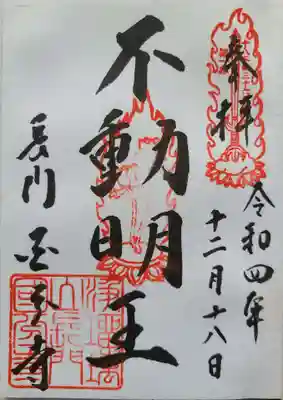 奉拝
令和四年
十二月十八日
不動明王
長門国分寺